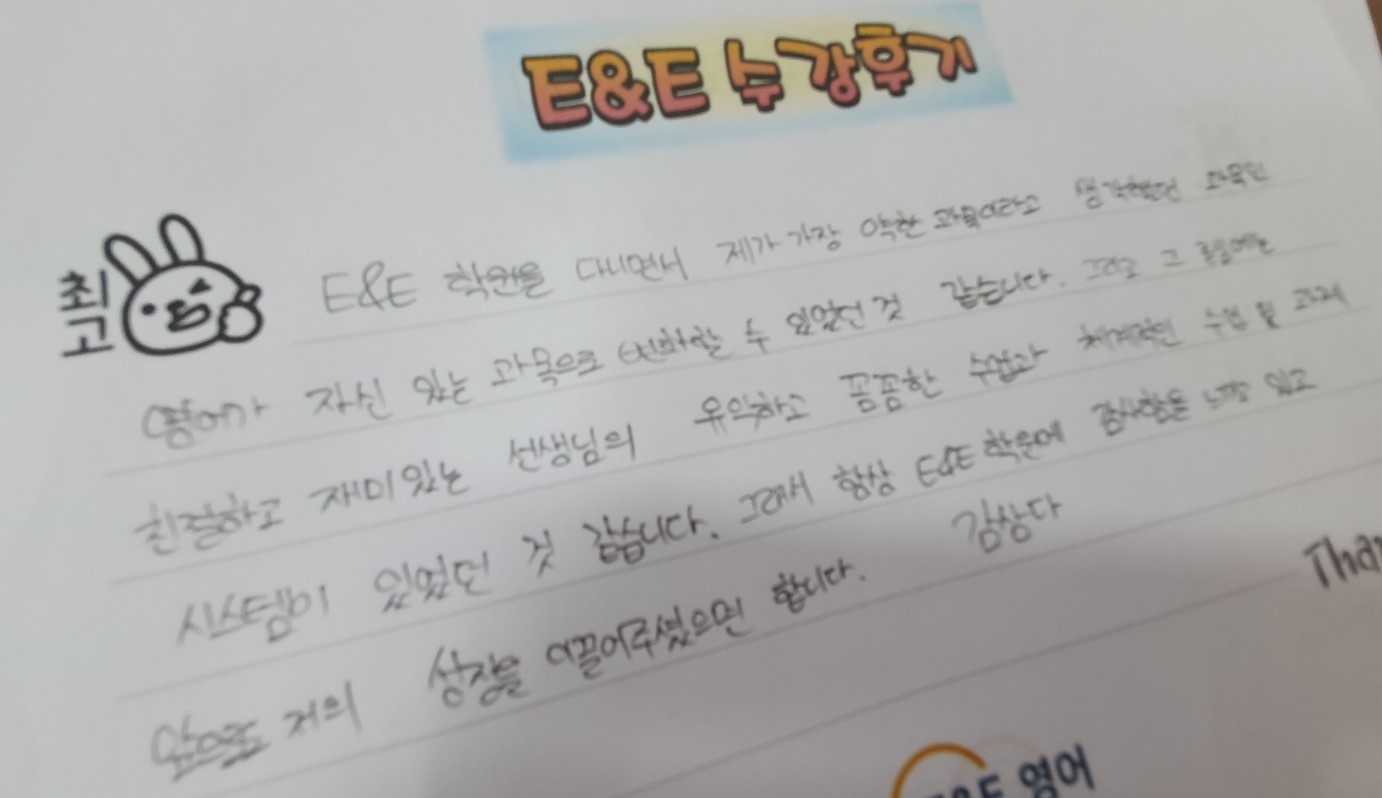 E&E 수강후기
최고
E&E 학원을 다니면서 제가 가장 약한 과목이라고 생각했던 과목인
영어가 자신 있는 과목으로 변화할 수 있었던 것 같습니다. 그리고 그 중심에는
친절하고 재미있는 선생님의 유익하고 꼼꼼한 수업과 체계적인 수업 및 과제
시스템이 있었던 것 같습니다. 그래서 항상 E&E 학원에 감사함을 느끼고 있고
앞으로도 저의 성장을 이끌어주셨으면 합니다. 감상다
Than
E&E 영어